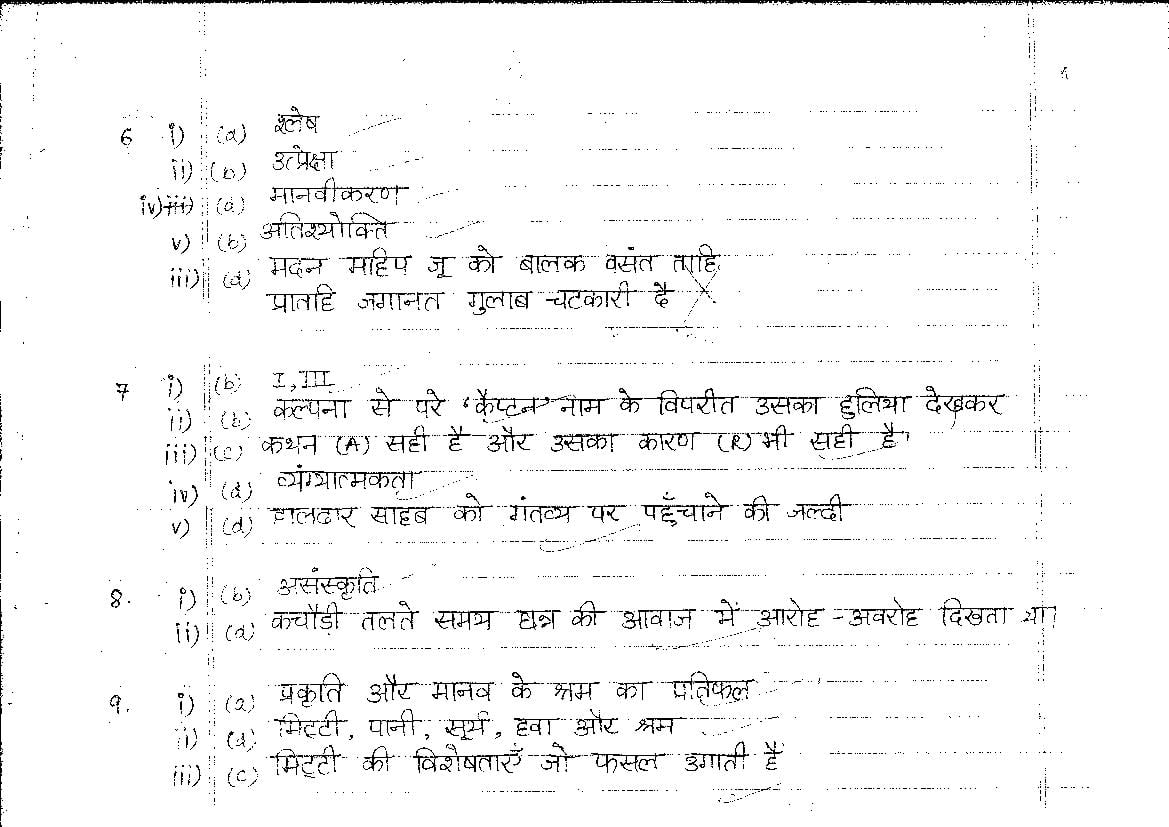 6 i) (a) श्लेष
ii) (b) उत्प्रेक्षा
iv) iii) (a) मानवीकरण
v) (b) अतिश्योक्ति
iii) (d) मदन महिप जू को बालक वसंत ताहि
प्रातहि जगानत गुलाब चटकारी दै
7 i) (b) I, III
ii) (b) कल्पना से परे 'कैप्टन' नाम के विपरीत उसका हुलिया देखकर
iii) (c) कथन (A) सही है और उसका कारण (R) भी सही है।
iv) (d) व्यंग्यात्मकता
v) (d) हालदार साहब को गंतव्य पर पहुँचाने की जल्दी
8. i) (b) असंस्कृति
ii) (a) कचौड़ी तलते समय छन्न की आवाज में आरोह - अवरोह दिखता था।
9. i) (a) प्रकृति और मानव के श्रम का प्रतिफल
ii) (d) मिट्टी, पानी, सूर्य, हवा और श्रम
iii) (c) मिट्टी की विशेषताएँ जो फसल उगाती है